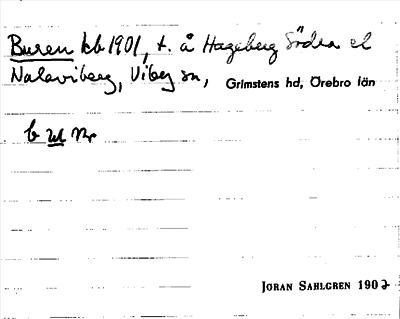 Buren kb 1901, t. å Hageberg Södra el
Nalaviberg, Viby sn, Grimstens hd, Örebro län
b ul Nr
JÖRAN SAHLGREN 1902